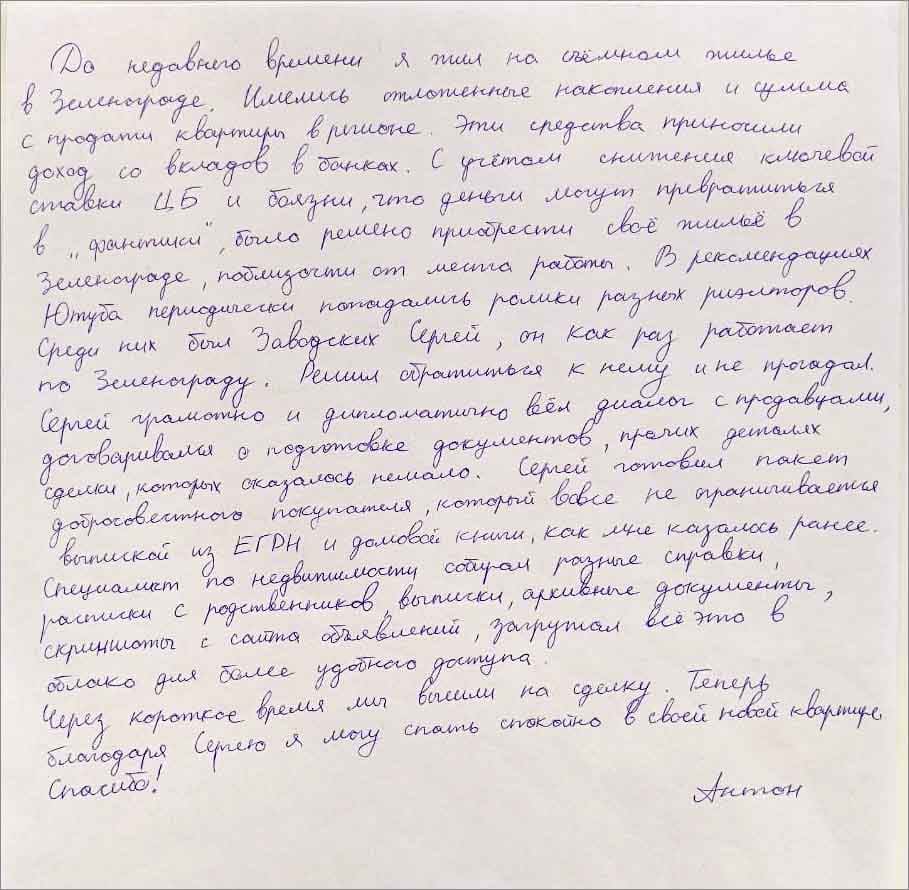 До недавнего времени я жил на съёмном жилье
в Зеленограде. Имелись отложенные накопления и сумма
с продажи квартиры в регионе. Эти средства приносили
доход со вкладов в банках. С учётом снижения ключевой
ставки ЦБ и боязни, что деньги могут превратиться
в „фантики“, было решено приобрести своё жильё в
Зеленограде, поблизости от места работы. В рекомендациях
Ютуба периодически попадались ролики разных риэлторов.
Среди них был Заводских Сергей, он как раз работает
по Зеленограду. Решил обратиться к нему и не прогадал.
Сергей грамотно и дипломатично вёл диалог с продавцами,
договаривался о подготовке документов, прочих деталях
сделки, которых оказалось немало. Сергей готовил пакет
добросовестного покупателя, который вовсе не ограничивается
выпиской из ЕГРН и домовой книги, как мне казалось ранее.
Специалист по недвижимости собирал разные справки,
расписки с родственников, выписки, архивные документы,
скриншоты с сайта объявлений, загружал всё это в
облако для более удобного доступа.
Через короткое время мы вышли на сделку. Теперь
благодаря Сергею я могу спать спокойно в своей новой квартире.
Спасибо!
Антон